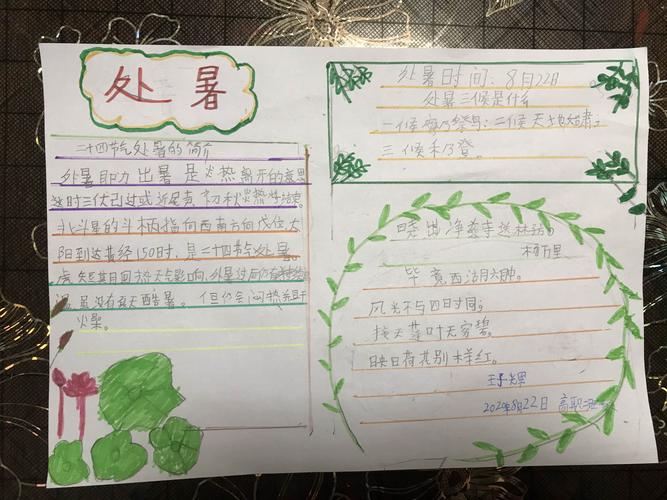 处暑
二十四节气处暑的简介
处暑即为出暑是炎热离开的意思
这时三伏已过或近尾声,初秋炎热将结束。
北斗星的斗柄指向西南方向戊位,太
阳到达黄经150时,是二十四节气处暑。
虎短期回热天气影响,处暑过后仍有持续
温虽没有夏天酷暑。但仍会闷热
火燥。
处暑时间:8月22日
处暑三候是什么
一候鹰乃祭鸟:二候天地始肃:
三候禾乃登。
晓出净慈寺送林子
杨万里
毕竟西湖六月中。
风光不与四日寸同;
接天莲叶无穷碧。
映日荷花别样红。
2020年8月22日 高职